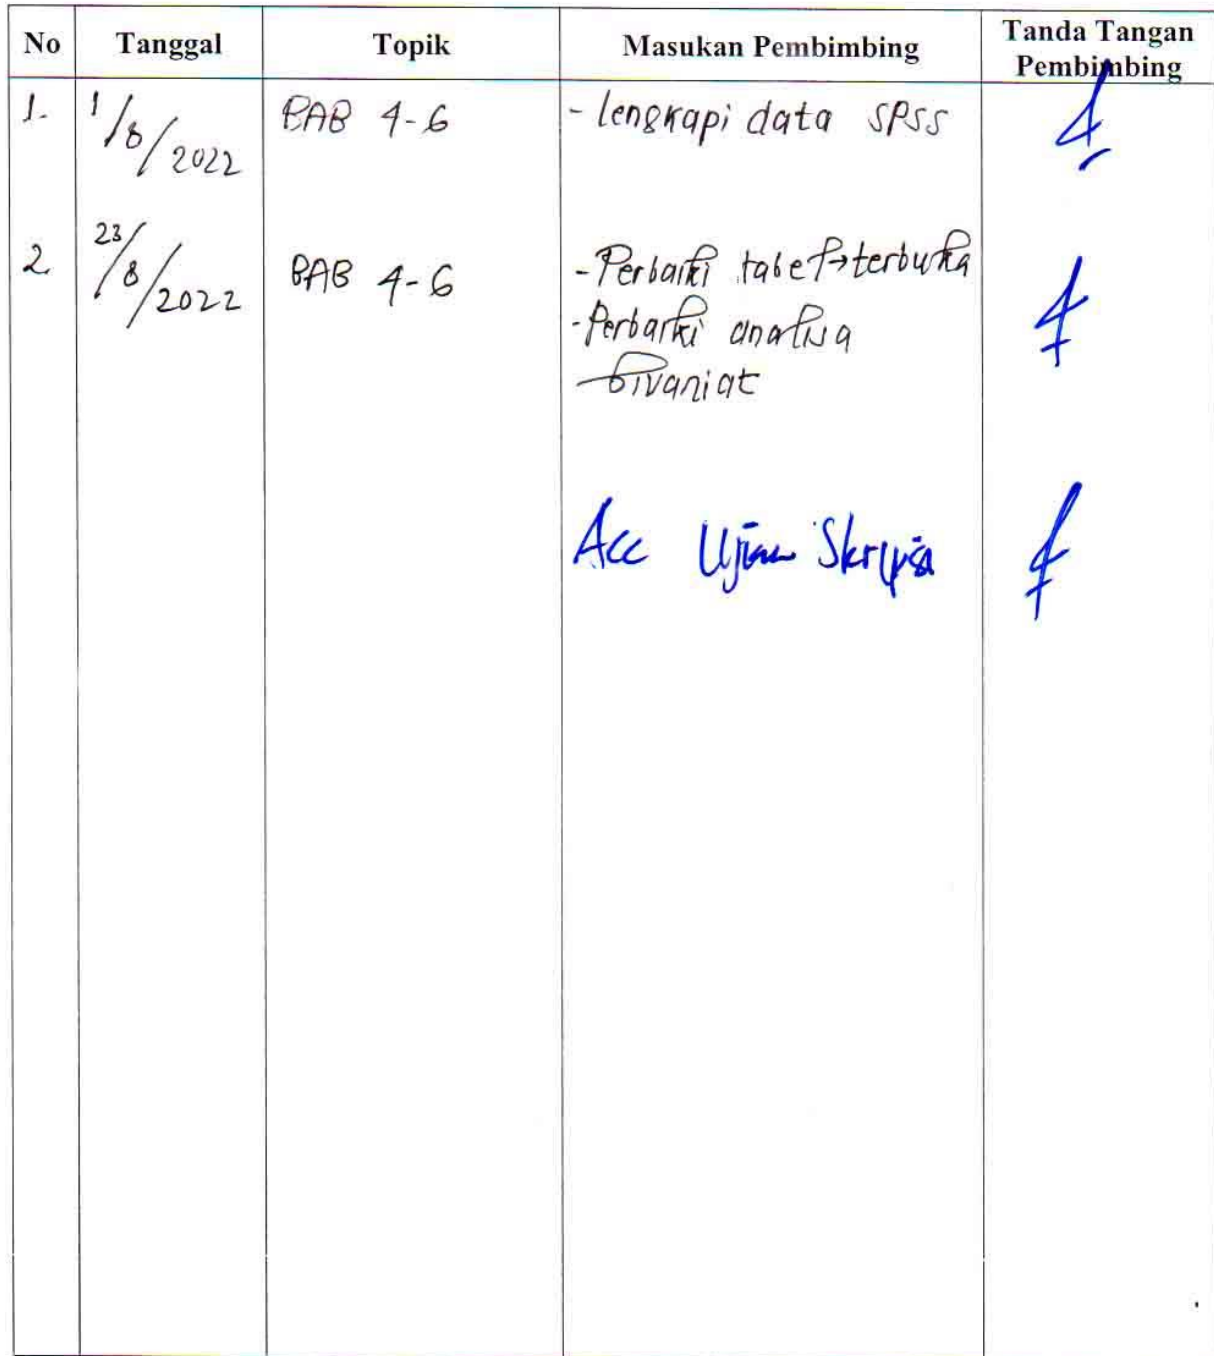 No Tanggal Topik Masukan Pembimbing Tanda Tangan Pembimbing
1. 1/8/2022 BAB 4-6 - lengkapi data SPSS
2. 23/8/2022 BAB 4-6 - Perbaiki tabel → terbuka
- Perbaiki analisa
bivariat
Acc Ujian Skripsi